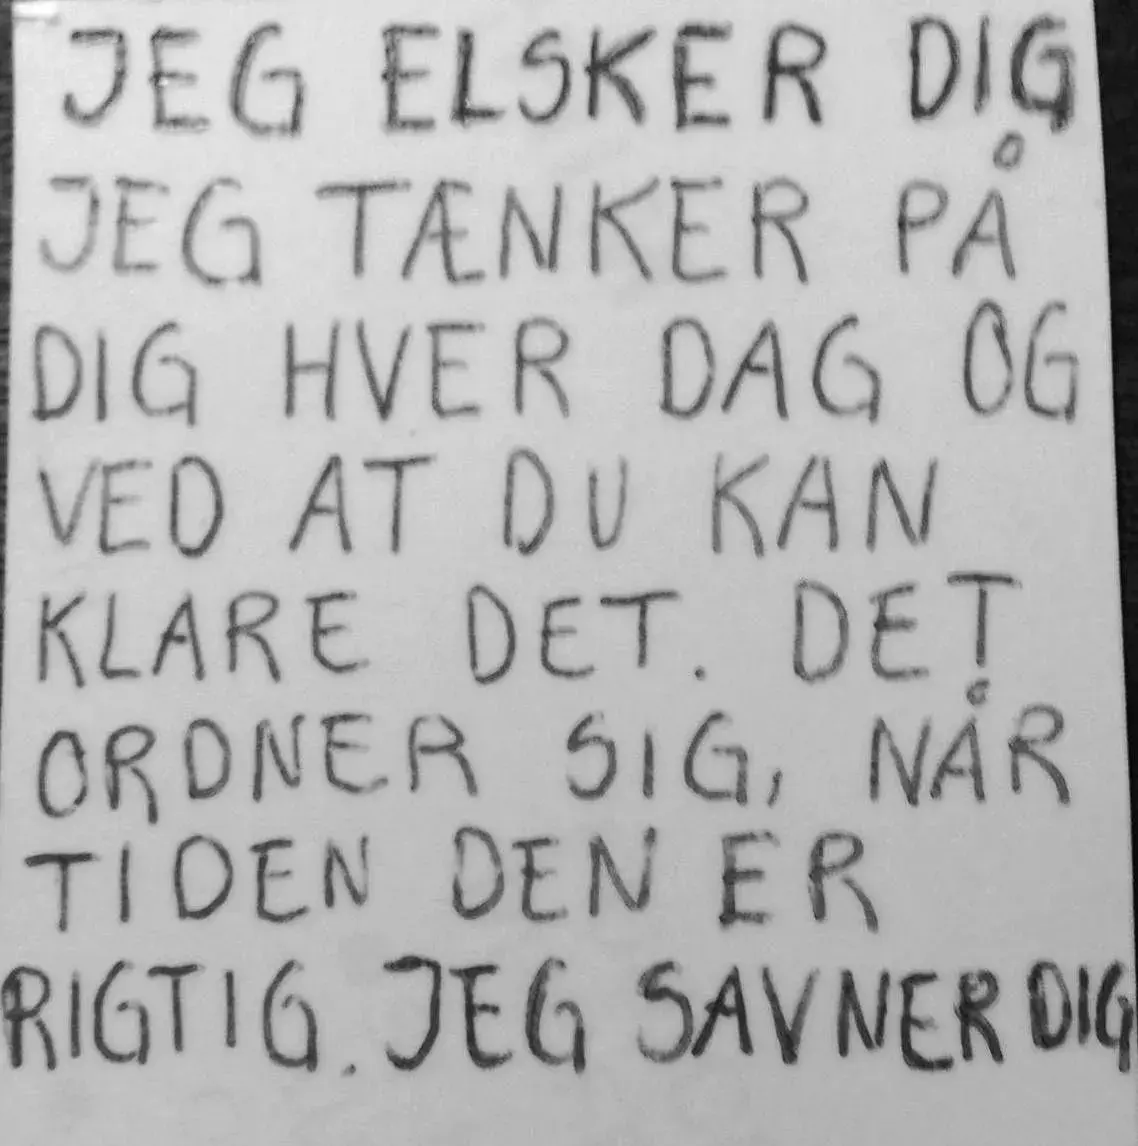 JEG ELSKER DIG
JEG TÆNKER PÅ
DIG HVER DAG OG
VED AT DU KAN
KLARE DET. DET
ORDNER SIG, NÅR
TIDEN DEN ER
RIGTIG. JEG SAVNER DIG